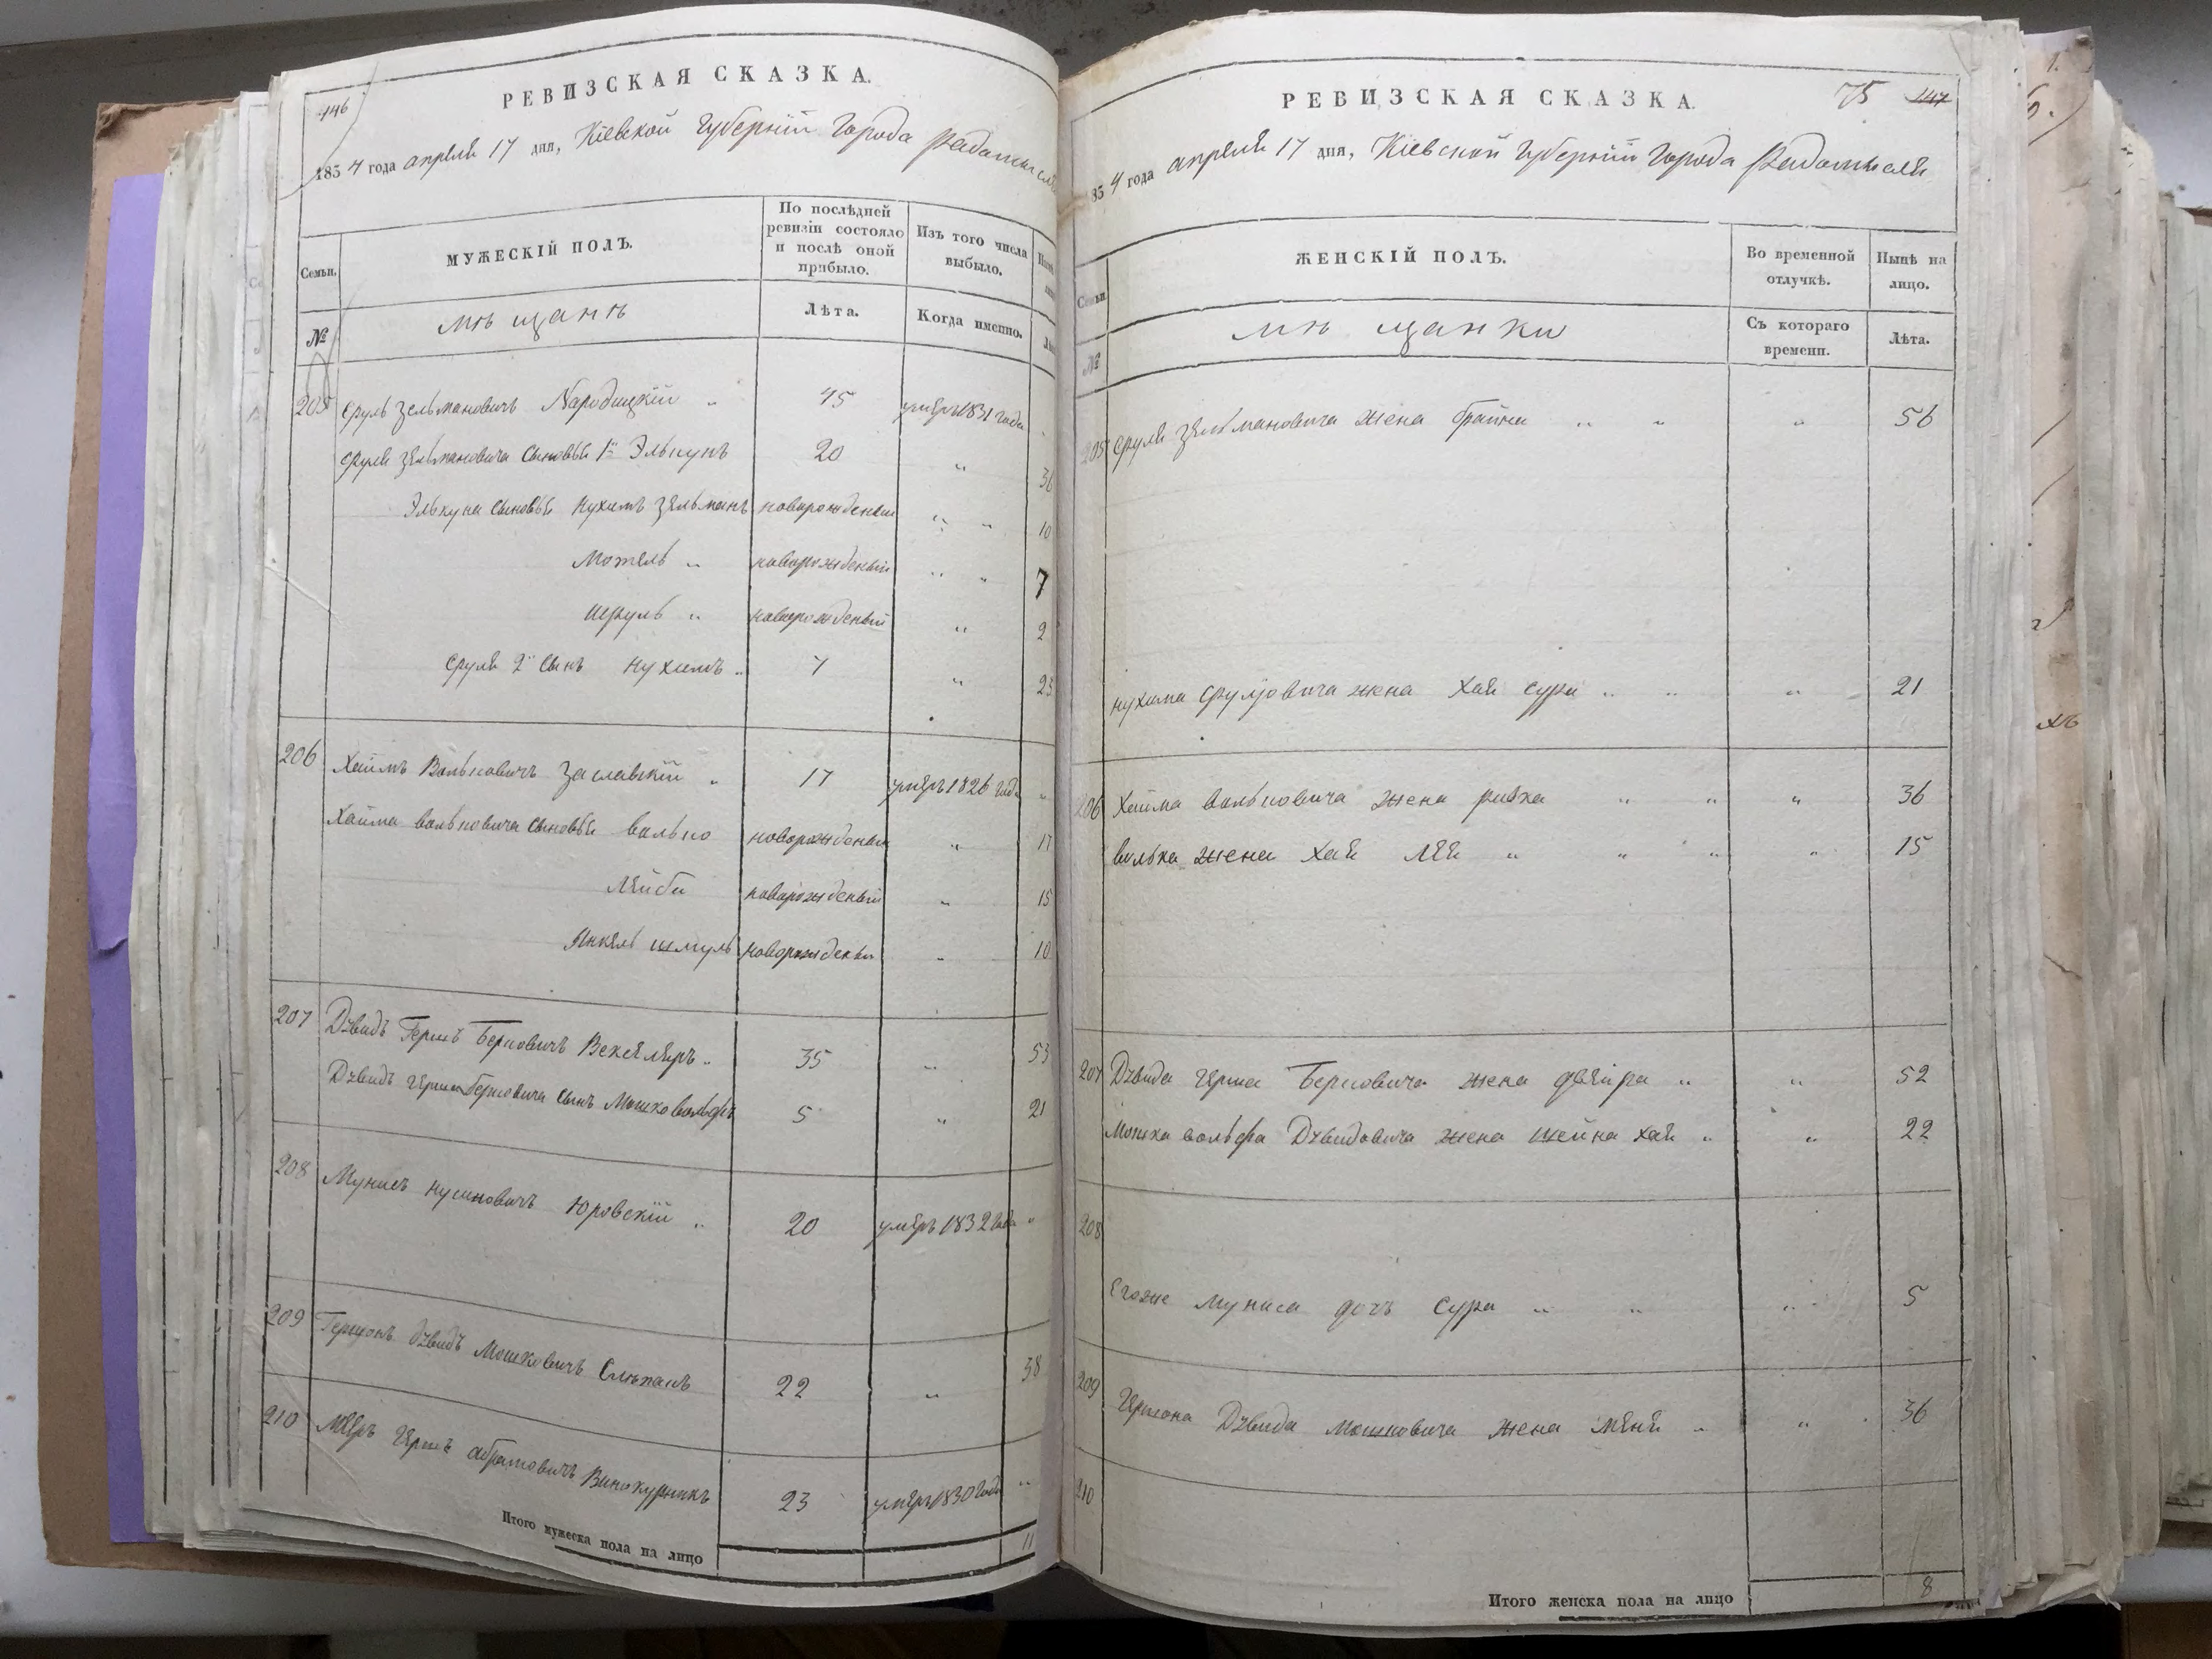 146
РЕВИЗСКАЯ СКАЗКА.
1854 года апреля 17 дня, Кіевской Губерніи Города Радомысля
Семьи.
МУЖЕСКІЙ ПОЛЪ.
По послѣдней ревизіи состояло и послѣ оной прибыло.
Изъ того числа выбыло.
№
мѣщанъ
Лѣта.
Когда именно.
205 Сруль Зельмановичъ Народицкій " 45 умеръ 1831 года
Сруля Зельмановича сыновья 1й Элькунъ 20 " 36
Элькуна сыновья Нухимъ Зельманъ новорожденный " " 10
Мотель " новорожденный " " 7
Исруль " новорожденный " 2
Сруля 2й сынъ Нухимъ " 7 " 23
206 Хаимъ Вольковичъ Заславскій " 17 умеръ 1826 года "
Хаима Вольковича сыновья Волько новорожденный " 17
Лейба новорожденный " 15
Янкель Шмуль новорожденный " 10
207 Дувидъ Гершъ Берковичъ Векслеръ " 35 " 53
Дувидъ Герша Берковича сынъ Мошко Вольфъ 5 " 21
208 Мунисъ Нусиновичъ Юровскій " 20 умеръ 1832 года "
209 Гершонъ Дувидъ Мошковичъ Слѣпакъ 22 " 38
210 Мееръ Гершъ Абрамовичъ Винокурникъ 23 умеръ 1830 года "
Итого мужеска пола на лицо 11
РЕВИЗСКАЯ СКАЗКА.
75 147
1854 года апреля 17 дня, Кіевской Губерніи Города Радомысля
Семьи
ЖЕНСКІЙ ПОЛЪ.
Во временной отлучкѣ.
Нынѣ на лицо.
№
мѣщанки
Съ котораго времени.
Лѣта.
205 Сруля Зельмановича жена Брайна " " " 56
Нухима Срулјовича жена Хая Сура " " " 21
206 Хаима Вольковича жена Ривка " " " 36
Волька жена Хая Лея " " " " 15
207 Дувида Герша Берковича жена Двейра " " 52
Мошка Вольфа Дувидовича жена Шейна Хая " " 22
208
Егоже Муниса дочь Сура " " " 5
209 Гершона Дувида Мошковича жена Меня " " 36
210
Итого женска пола на лицо 8